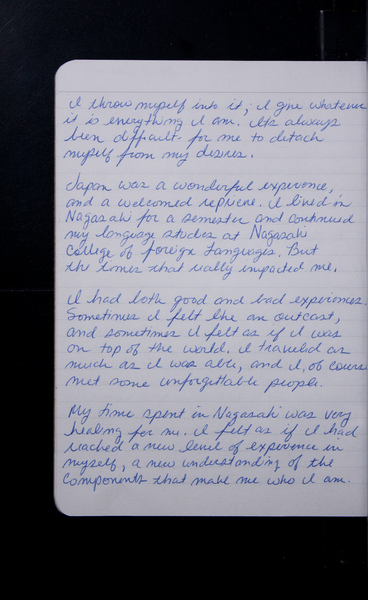 I throw myself into it; I give whatever
it is everything I am. Its always
been difficult for me to detach
myself from my desires.
Japan was a wonderful experience,
and a welcomed reprieve. I lived in
Nagasaki for a semester and continued
my language studies at Nagasaki
College of foreign Languages. But
the times that really impacted me.
I had both good and bad experiences.
Sometimes I felt like an outcast,
and sometimes I felt as if I was
on top of the world. I traveled as
much as I was able, and I, of course
met some unforgettable people.
My time spent in Nagasaki was very
healing for me. I felt as if I had
reached a new level of experience in
myself, a new understanding of the
components that make me who I am.